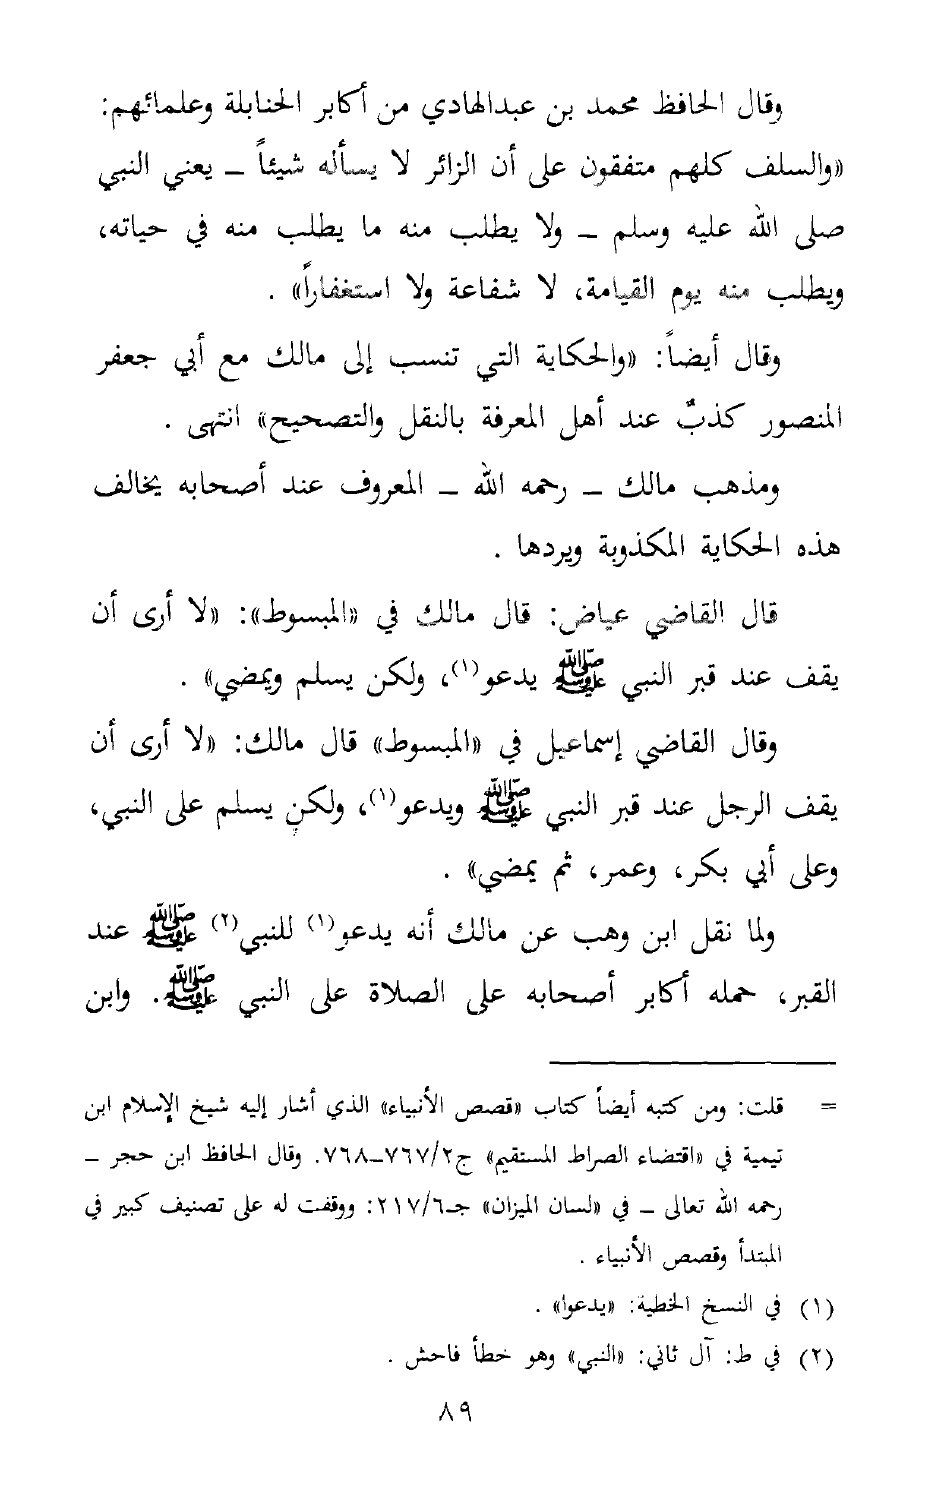 وقال الحافظ محمد بن عبدالهادي من أكابر الحنابلة وعلمائهم:
«والسلف كلهم متفقون على أن الزائر لا يسأله شيئاً – يعني النبي
صلى الله عليه وسلم – ولا يطلب منه ما يطلب منه في حياته،
ويطلب منه يوم القيامة، لا شفاعة ولا استغفاراً» .
وقال أيضاً: «والحكاية التي تنسب إلى مالك مع أبي جعفر
المنصور كذبٌ عند أهل المعرفة بالنقل والتصحيح» انتهى .
ومذهب مالك – رحمه الله – المعروف عند أصحابه يخالف
هذه الحكاية المكذوبة ويردها .
قال القاضي عياض: قال مالك في «المبسوط»: «لا أرى أن
يقف عند قبر النبي ﷺ يدعو(١)، ولكن يسلم ويمضي» .
وقال القاضي إسماعيل في «المبسوط» قال مالك: «لا أرى أن
يقف الرجل عند قبر النبي ﷺ ويدعو(١)، ولكن يسلم على النبي،
وعلى أبي بكر، وعمر، ثم يمضي» .
ولما نقل ابن وهب عن مالك أنه يدعو(١) للنبي(٢) ﷺ عند
القبر، حمله أكابر أصحابه على الصلاة على النبي ﷺ. وابن
= قلت: ومن كتبه أيضاً كتاب «قصص الأنبياء» الذي أشار إليه شيخ الإسلام ابن
تيمية في «اقتضاء الصراط المستقيم» ج٢/٧٦٧–٧٦٨. وقال الحافظ ابن حجر –
رحمه الله تعالى – في «لسان الميزان» جـ٦/٢١٧: ووقفت له على تصنيف كبير في
المبتدأ وقصص الأنبياء .
(١) في النسخ الخطية: «يدعوا» .
(٢) في ط: آل ثاني: «النبي» وهو خطأ فاحش .
٨٩